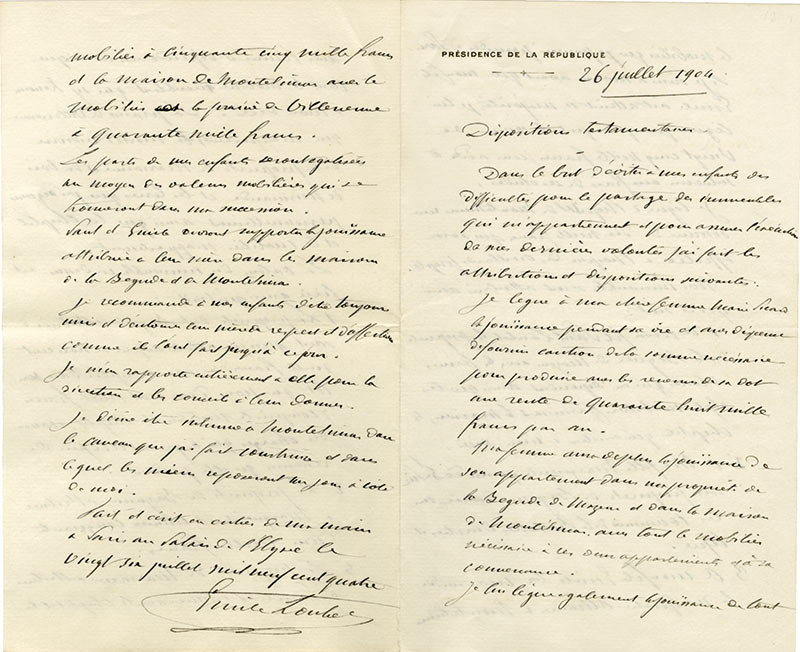 PRÉSIDENCE DE LA RÉPUBLIQUE
26 juillet 1904.
Dispositions testamentaires.
Dans le but d'éviter à mes enfants des
difficultés pour le partage des immeubles
qui m'appartiennent et pour assurer l'exécution
de mes dernières volontés j'ai fait les
attributions et dispositions suivantes.
Je lègue à ma chère femme Marie Picard
la jouissance pendant sa vie et avec dispense
de fournir caution de la somme nécessaire
pour produire avec les revenus de sa dot
une rente de quarante huit mille
francs par an.
Ma femme aura de plus la jouissance de
son appartement dans ma propriété de
la Begude de Mazenc et dans la maison
de Montélimar avec tout le mobilier
nécessaire à ces deux appartements et à sa
convenance.
Je lui lègue également la jouissance de tout
mobilier à cinquante cinq mille francs
et la maison de Montélimar avec le
mobilier la prairie de Villeneuve
à quarante mille francs.
Les parts de mes enfants seront égalisées
au moyen des valeurs mobilières qui se
trouveront dans ma succession.
Paul et Emile devront supporter la jouissance
attribuée à leur mère dans les maisons
de la Begude et de Montélimar.
Je recommande à mes enfants d'être toujours
unis et d'entourer leur mère de respect et d'affection
comme ils l'ont fait jusqu'à ce jour.
Je m'en rapporte entièrement à elle pour la
direction et les conseils à leur donner.
Je désire être inhumé à Montélimar dans
le caveau que j'ai fait construire et dans
lequel les miens reposeront un jour à côté
de moi.
Fait et écrit en entier de ma main
à Paris au Palais de l'Elysée le
vingt six juillet mil neuf cent quatre
Emile Loubet